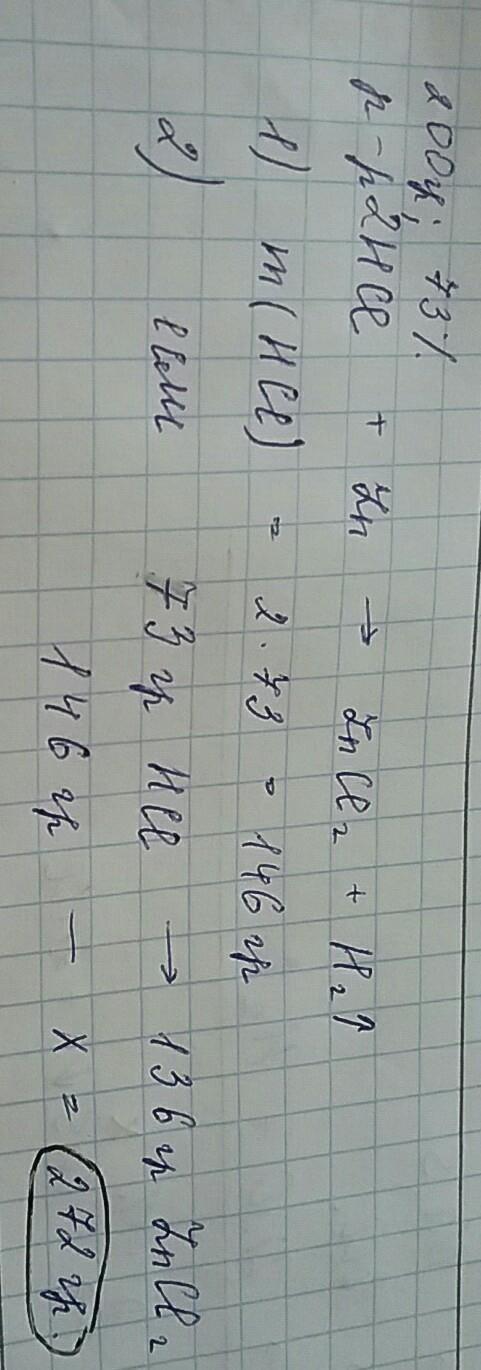 200гр; 73%
р-р 2HCl + Zn → ZnCl₂ + H₂↑
1) m(HCl) = 2·73 = 146 гр
2) если 73 гр HCl → 136 гр ZnCl₂
146 гр — x = 272 гр.